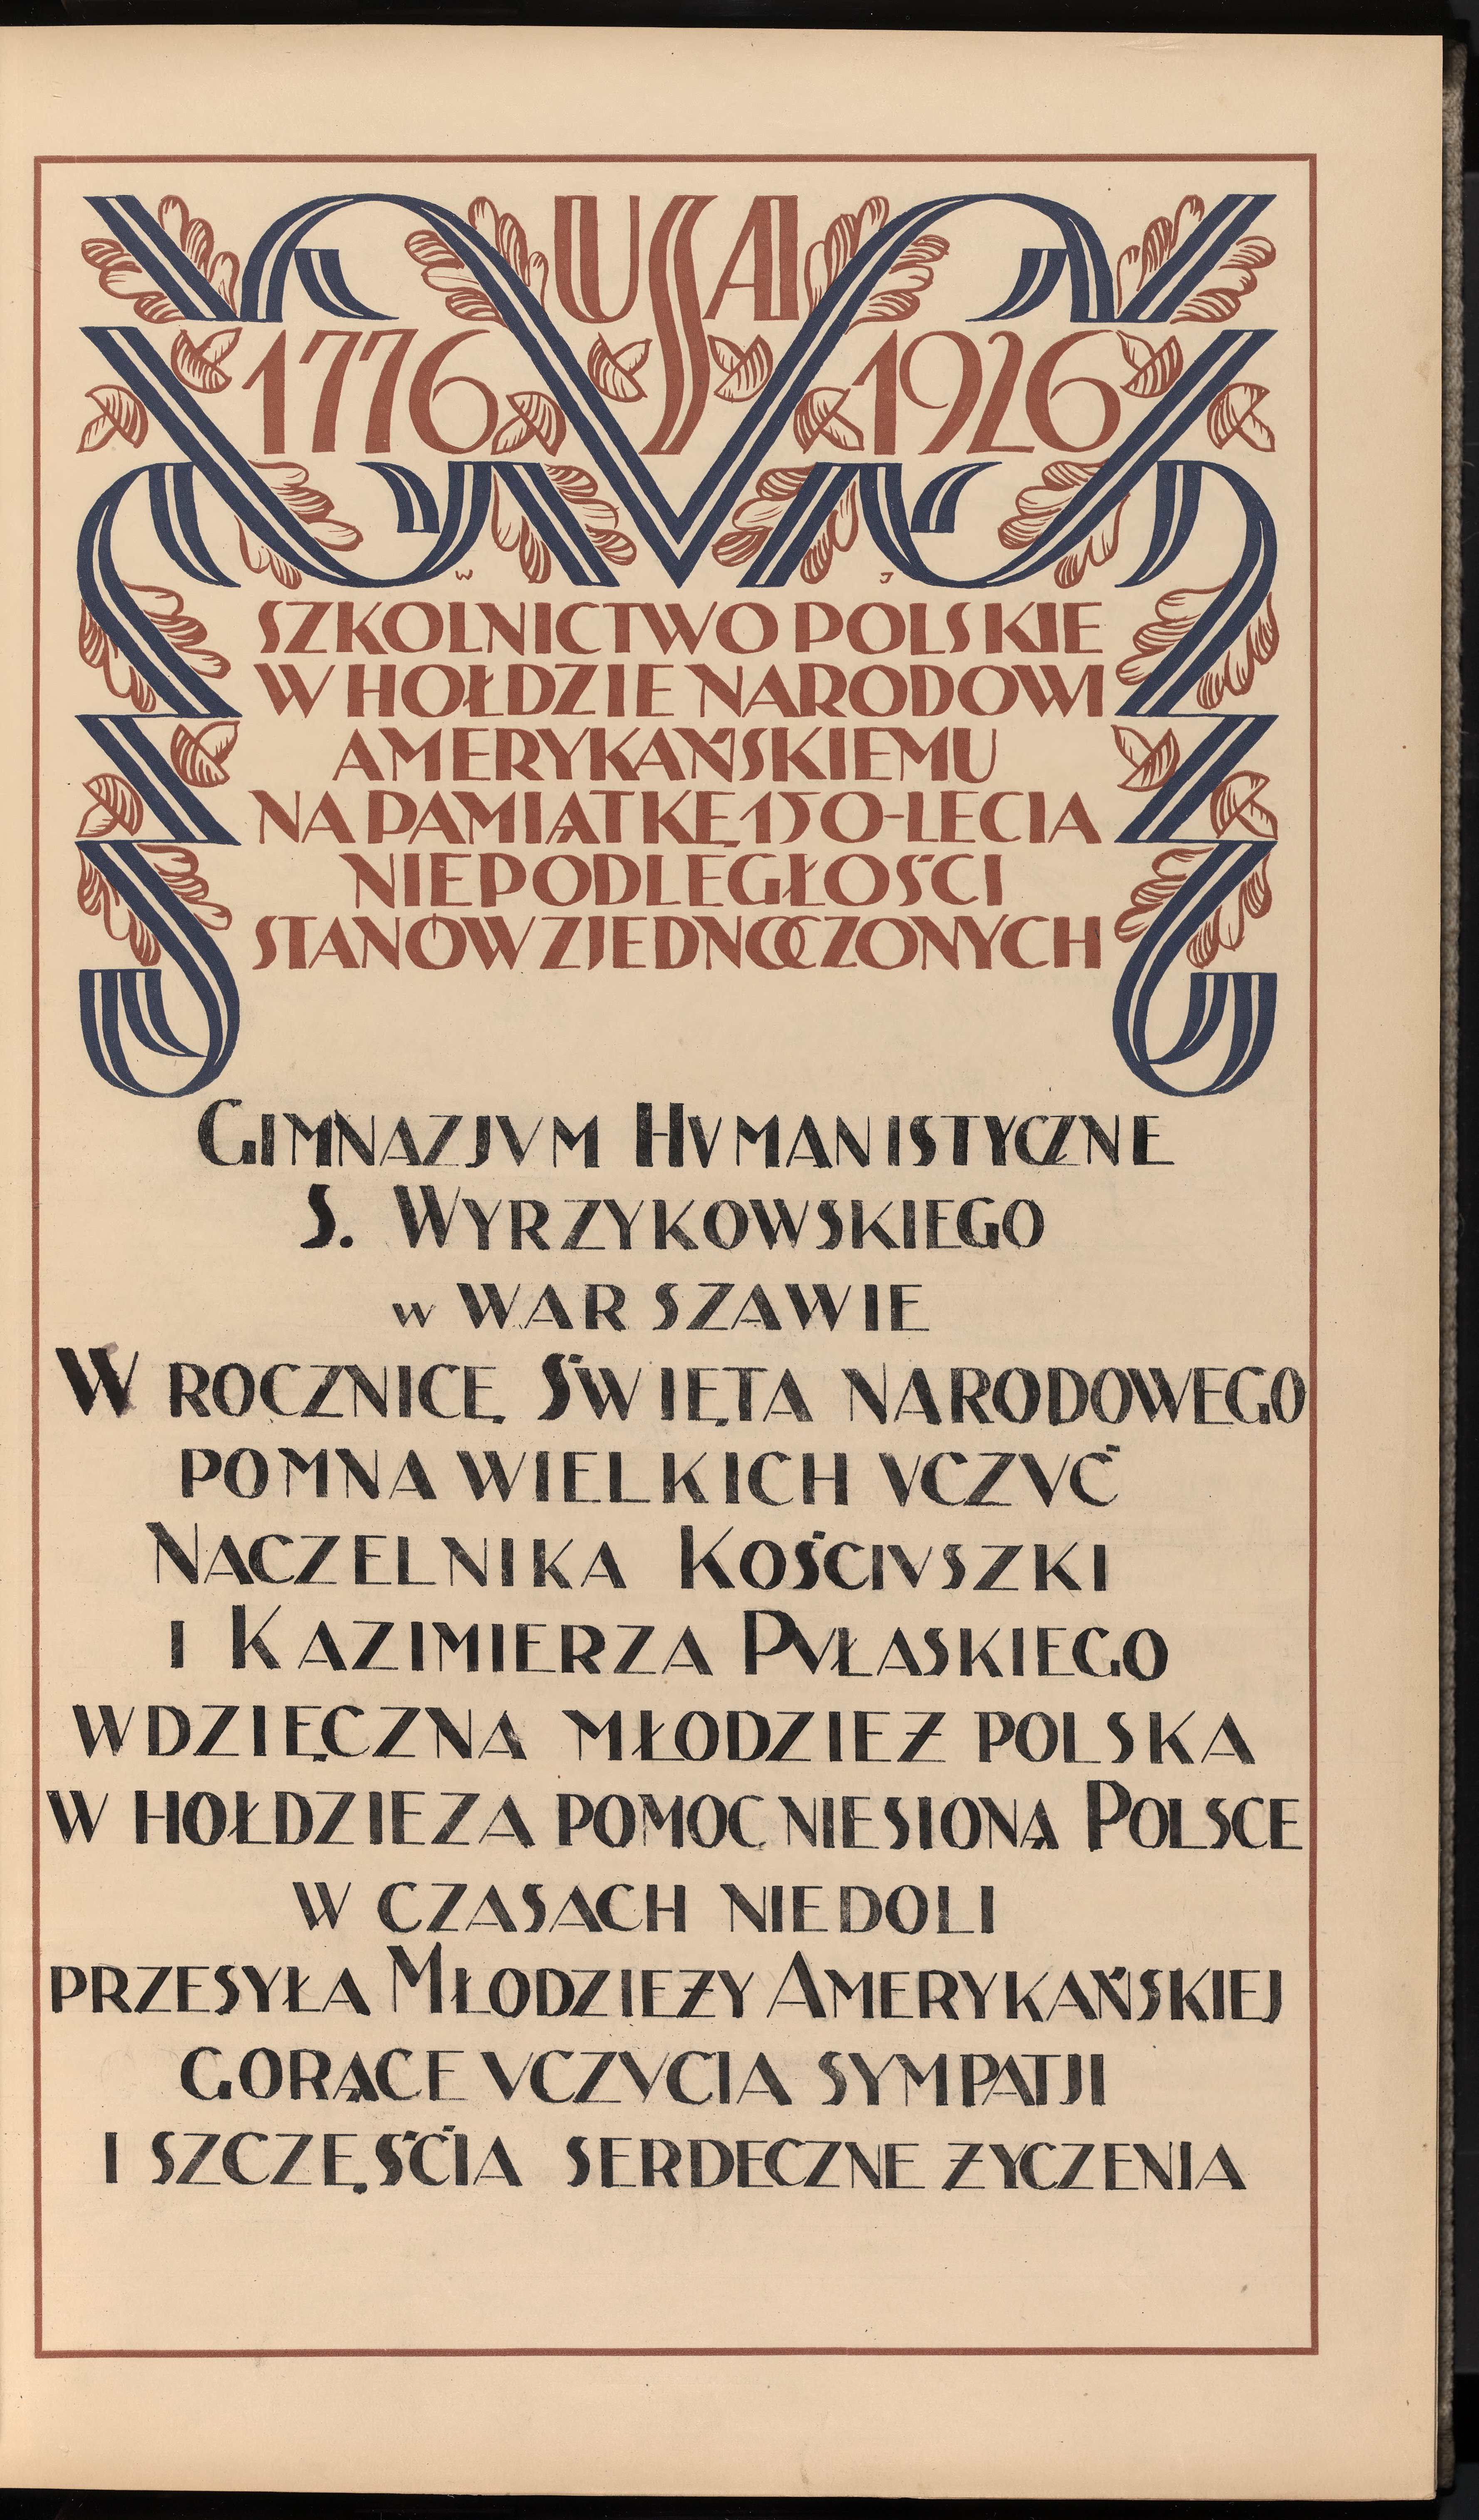 USA
1776 1926
W J
SZKOLNICTWO POLSKIE
W HOŁDZIE NARODOWI
AMERYKAŃSKIEMU
NA PAMIĄTKĘ 150-LECIA
NIEPODLEGŁOŚCI
STANÓW ZJEDNOCZONYCH
GIMNAZJVM HVMANISTYCZNE
S. WYRZYKOWSKIEGO
w WARSZAWIE
W ROCZNICĘ ŚWIĘTA NARODOWEGO
POMNA WIELKICH VCZVĆ
NACZELNIKA KOŚCIVSZKI
I KAZIMIERZA PVŁASKIEGO
WDZIĘCZNA MŁODZIEŻ POLSKA
W HOŁDZIE ZA POMOC NIESIONĄ POLSCE
W CZASACH NIEDOLI
PRZESYŁA MŁODZIEŻY AMERYKAŃSKIEJ
GORĄCE VCZVCIA SYMPATJI
I SZCZĘŚĆIA SERDECZNE ŻYCZENIA